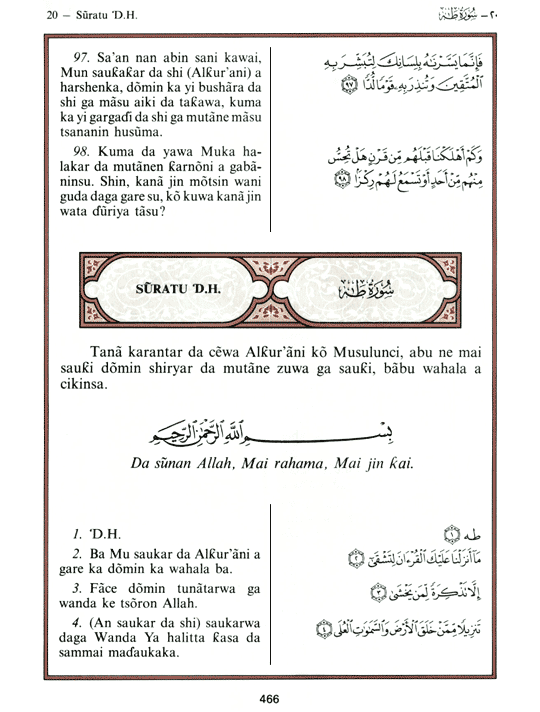 20 — Sũratu Ɗ.H.
٢٠ — سُورَةُ طٰهٰ
97. Sa'an nan abin sani kawai,
Mun sauƙaƙar da shi (Alƙur'ani) a
harshenka, dõmin ka yi bushãra da
shi ga mãsu aiki da taƙawa, kuma
ka yi gargaɗi da shi ga mutãne mãsu
tsananin husũma.
فَإِنَّمَا يَسَّرْنَٰهُ بِلِسَانِكَ لِتُبَشِّرَ بِهِ
الْمُتَّقِينَ وَتُنذِرَ بِهِۦ قَوْمًا لُّدًّا ٩٧
98. Kuma da yawa Muka ha-
lakar da mutãnen ƙarnõni a gabã-
ninsu. Shin, kanã jin mõtsin wani
guda daga gare su, kõ kuwa kanã jin
wata ɗũriya tãsu?
وَكَمْ أَهْلَكْنَا قَبْلَهُم مِّن قَرْنٍ هَلْ تُحِسُّ
مِنْهُم مِّنْ أَحَدٍ أَوْ تَسْمَعُ لَهُمْ رِكْزًا ٩٨
SŨRATU Ɗ.H.
سُورَةُ طٰهٰ
Tanã karantar da cẽwa Alƙur'ãni kõ Musulunci, abu ne mai
sauƙi dõmin shiryar da mutãne zuwa ga sauƙi, bãbu wahala a
cikinsa.
بِسْمِ اللَّهِ الرَّحْمَٰنِ الرَّحِيمِ
Da sũnan Allah, Mai rahama, Mai jin ƙai.
1. Ɗ.H.
طه ١
2. Ba Mu saukar da Alƙur'ãni a
gare ka dõmin ka wahala ba.
مَا أَنزَلْنَا عَلَيْكَ الْقُرْءَانَ لِتَشْقَىٰ ٢
3. Fãce dõmin tunãtarwa ga
wanda ke tsõron Allah.
إِلَّا تَذْكِرَةً لِّمَن يَخْشَىٰ ٣
4. (An saukar da shi) saukarwa
daga Wanda Ya halitta ƙasa da
sammai maɗaukaka.
تَنزِيلًا مِّمَّنْ خَلَقَ الْأَرْضَ وَالسَّمَٰوَٰتِ الْعُلَى ٤
466